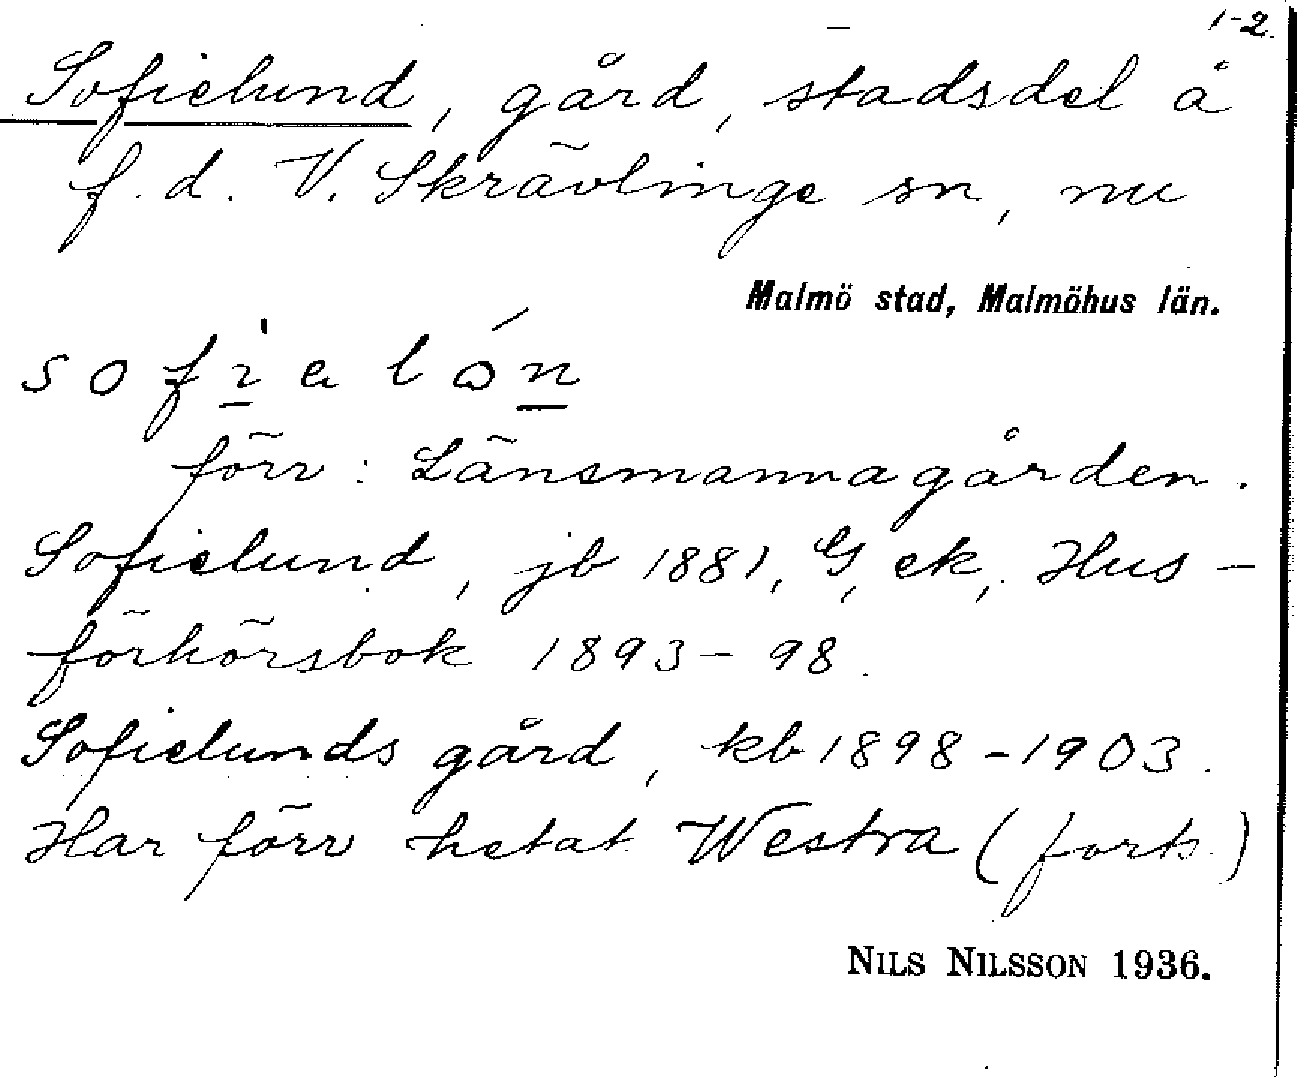 1-2.
Sofielund, gård, stadsdel å
f. d. V. Skrävlinge sn, nu
Malmö stad, Malmöhus län.
sofialón
förr: Länsmannagården.
Sofielund, jb 1881, G, ek, Hus-
förhörsbok 1893-98.
Sofielunds gård, kb 1898-1903.
Har förr hetat Westra (forts.)
NILS NILSSON 1936.